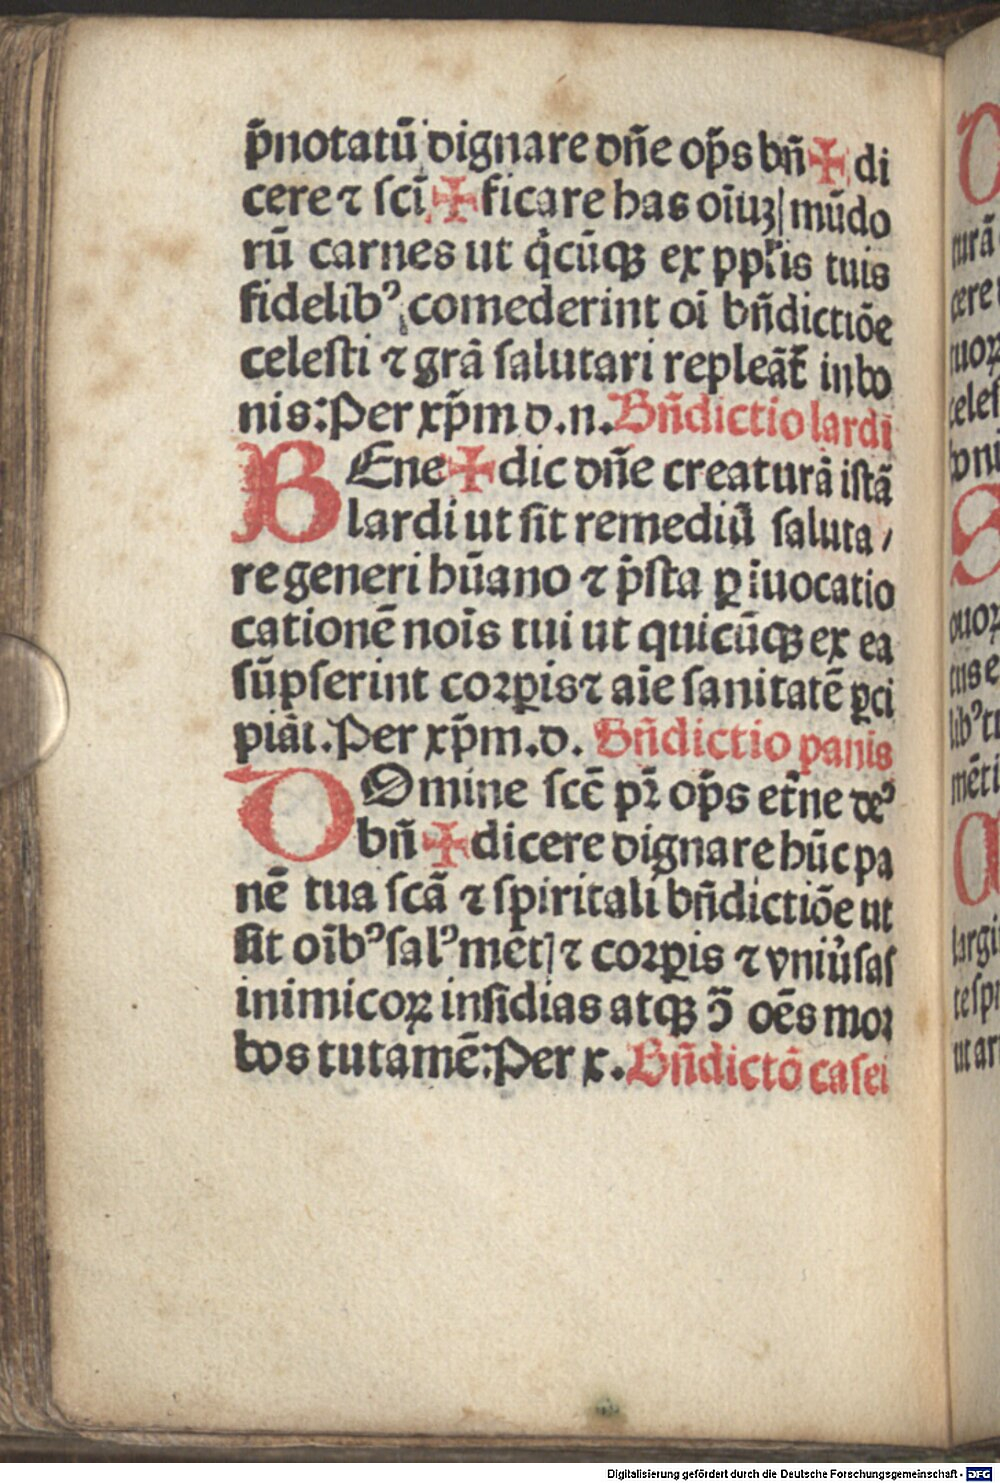 p̄notatū dignare dn̄e op̄s bn̄ ✠ di
cere ⁊ sci̅ ✠ ficare has oi̅uꝫ mūdo
rū carnes ut qͥcūqꝫ ex ppl̓is tuis
fidelibꝰ comederint oi̅ bn̄dictiōe
celesti ⁊ grā salutari repleāt᷑ in bo
nis: Per xp̄m d. n. Bn̄dictio lardi
BEne ✠ dic dn̄e creaturā istā
lardi ut sit remediū saluta /
re generi hūano ⁊ p̄sta ꝑ iuocatio
cationē nois̄ tui ut quicūqꝫ ex ea
sūpserint corꝑis ⁊ aīe sanitatē ꝑci
piāt. Per xp̄m. d. Bn̄dictio panis
DOmine scē pr̄ op̄s et̄ne deꝰ
bn̄ ✠ dicere dignare hūc pa
nē tua scā ⁊ spiritali bn̄dictiōe ut
sit oi̅bꝰ salꝰ met] ⁊ corꝑis ⁊ vniu̓sas
inimicoꝝ insidias atqꝫ ↄ̄ oēs mor
bos tutamē: Per x. Bn̄dictō casei
turā
cere
tuoꝝ
celes
boni
quoꝝ
tus e
libꝰ tu
mēti
largi
te spi
ut ar
Digitalisierung gefördert durch die Deutsche Forschungsgemeinschaft - DFG